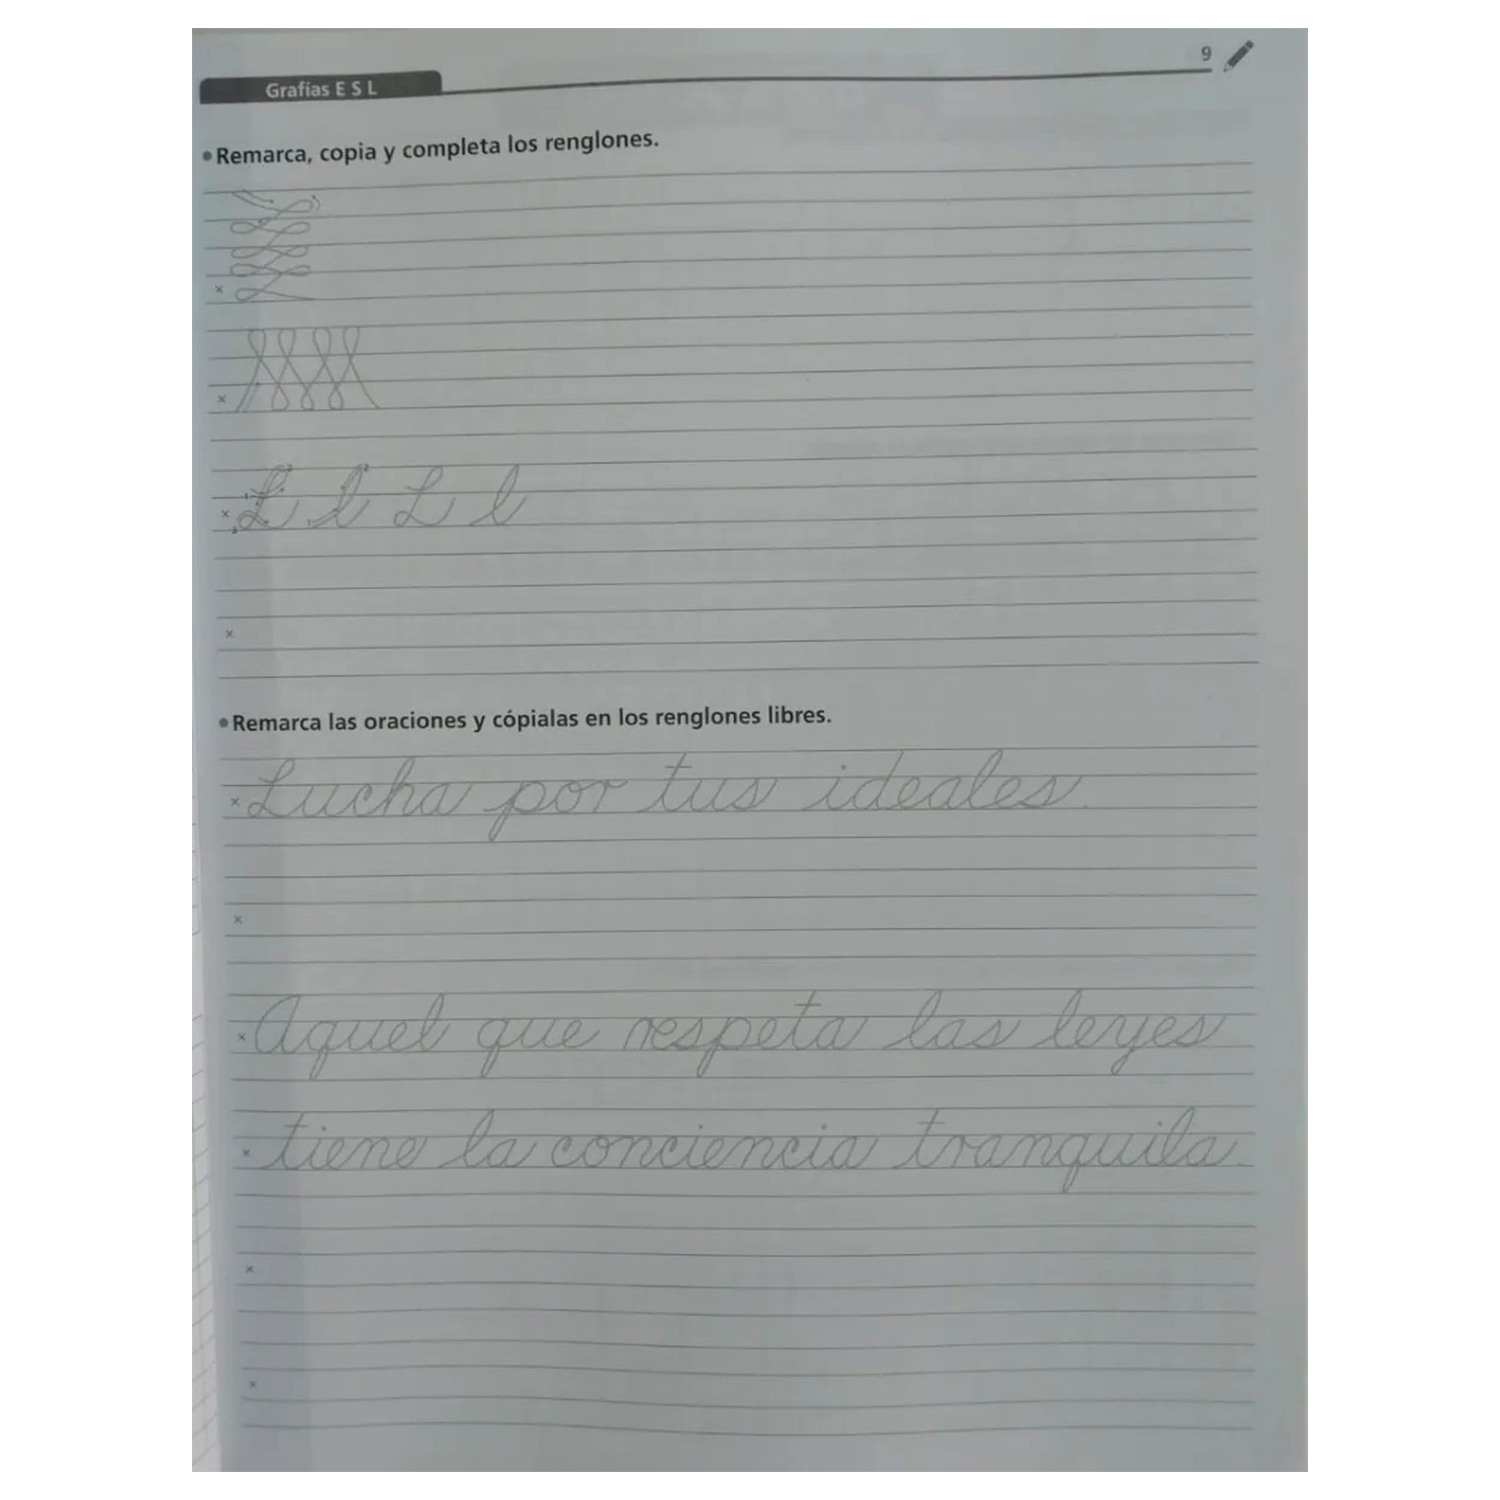 9
Grafías E S L
• Remarca, copia y completa los renglones.
L l L l
• Remarca las oraciones y cópialas en los renglones libres.
Lucha por tus ideales.
Aquel que respeta las leyes
tiene la conciencia tranquila.